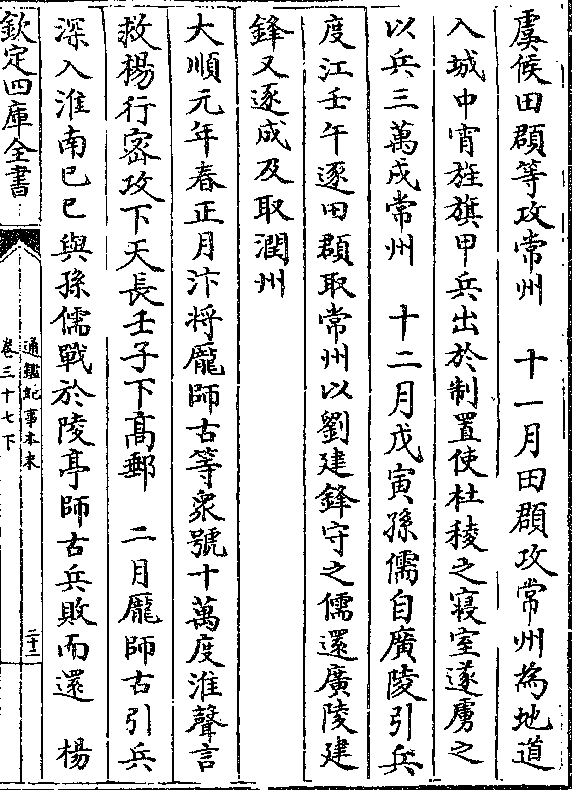 虞候田頵等攻常州　十一月田頵攻常州為地道
入城中宵旌旗甲兵出於制置使杜稜之寢室遂虜之
以兵三萬戍常州　十二月戊寅孫儒自廣陵引兵
度江壬午逐田頵取常州以劉建鋒守之儒還廣陵建
鋒又逐成及取潤州
大順元年春正月汴將龐師古等衆號十萬度淮聲言
救楊行密攻下天長壬子下高郵　二月龐師古引兵
深入淮南己巳與孫儒戰於陵亭師古兵敗而還　楊
欽定四庫全書
通鑑紀事本末
卷三十七下
二十二